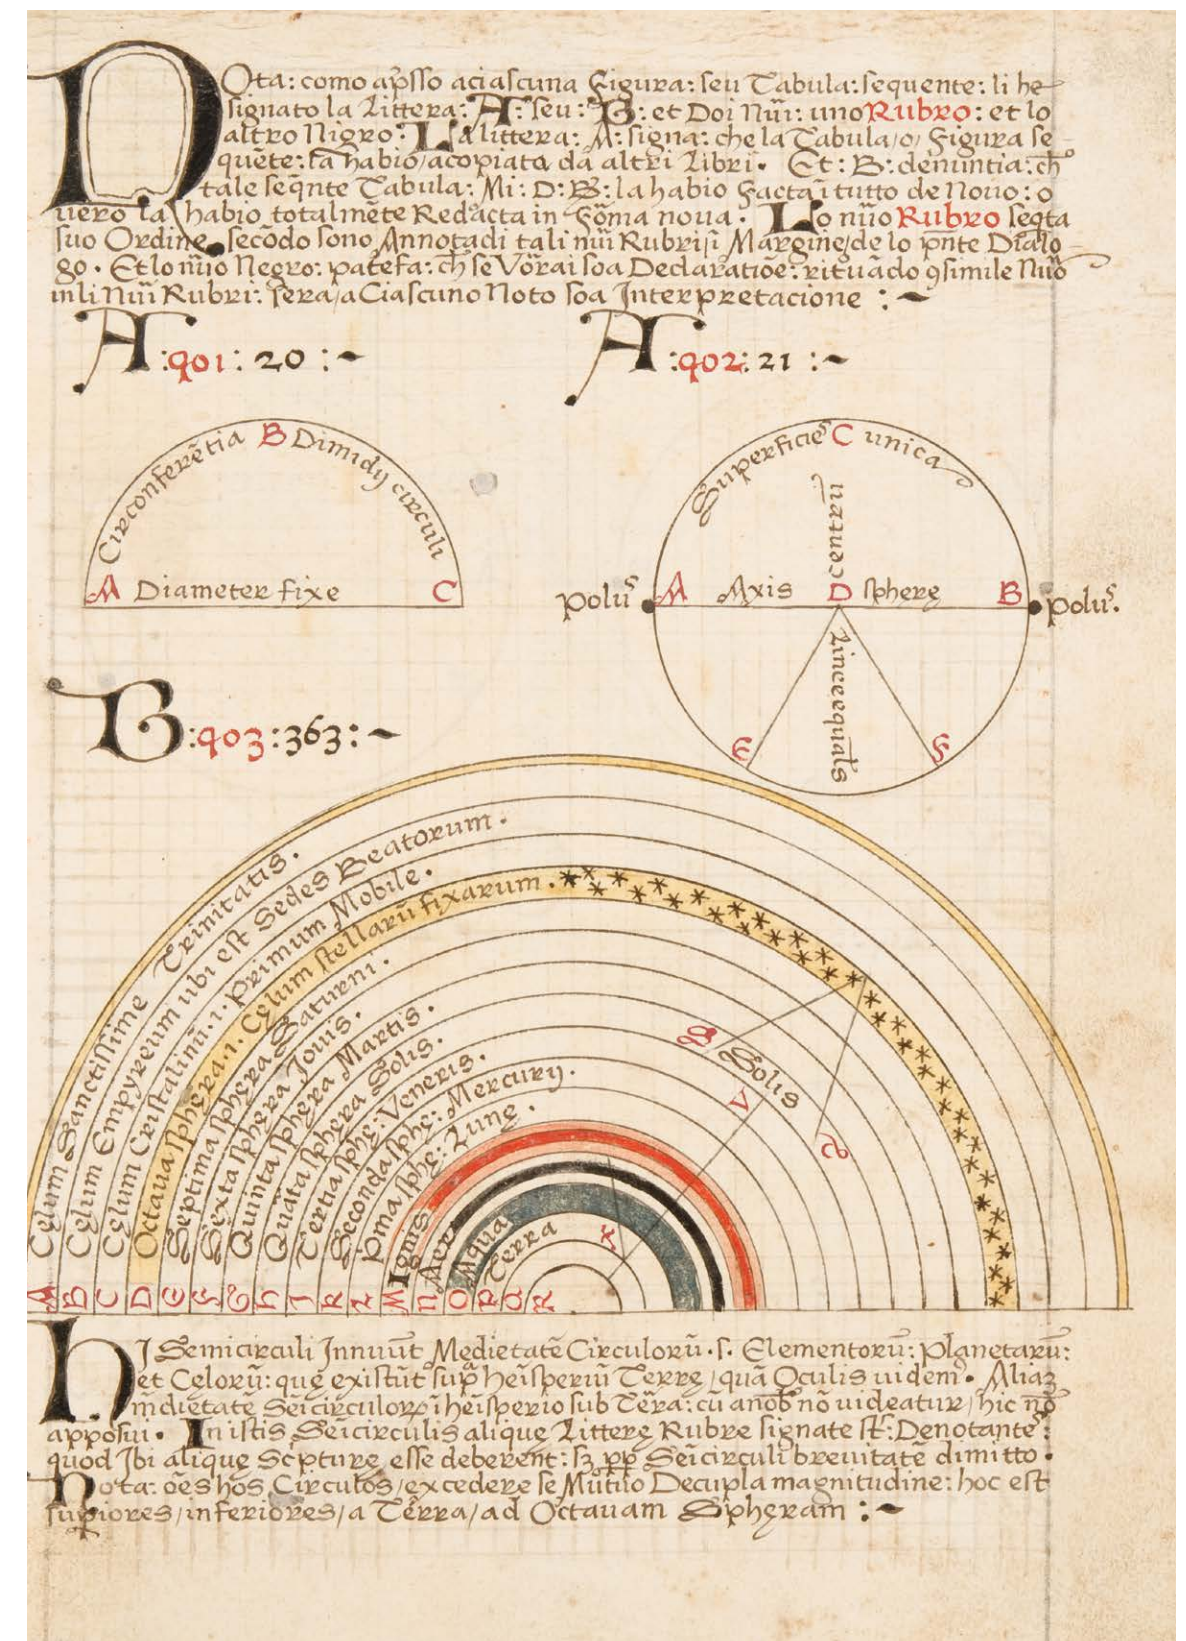 Nota: como ap̃sso aciascuna Figura: seu Tabula: sequente: li he
signato la Littera: A: seu: B: et Doi Nũi: uno Rubro: et lo
altro Nigro: La littera: A: signa: che la Tabula/o/ Figura se
quẽte: la habio/acopiato da altri Libri. Et: B: denuntia: ch̃
tale seq̃nte Tabula: Mi: D: B: la habio Facta ĩ tutto de Nouo: o
uero la habio totalmẽte Redacta in Fõma noua. Lo nũo Rubro seqta
suo Ordine secõdo sono Annotadi tali nũi Rubri ĩ Margine de lo p̃nte Dialo
go. Et lo nũo Negro: patefa: ch̃ se Võrai soa Declaratiõe: rituãdo 9simile Nũo
in li Nũi Rubri: sera/a Ciascuno Noto soa Interpretacione :~
A :901: 20 :~
A :902: 21 :~
Circonferẽtia B Dimidij circuli
A Diameter fixe C
Superficies C unica
centrũ
polus A Axis D sphere B polus.
Linee equales
E F
B :903: 363: ~
Celum Sanctissime Trinitatis.
Celum Empyreum ubi est Sedes Beatorum.
Celum Cristalinũ. i. Primum Mobile.
Octaua sphera. i. Celum stellarũ fixarum.
Septima sphera Saturni.
Sexta sphera Jouis.
Quinta sphera Martis.
Quãta sphera Solis.
Tertia sphe: Veneris.
Seconda sphe: Mercurij.
Pma sphe: Lune.
Ignis
Aer
Aqua
Terra
B Solis
V
X
A B C D E F G H I K L M N O P Q R
HI Semicirculi Innuũt Medietatẽ Circulorũ. s. Elementorũ: Planetarũ:
et Celorũ: que existũt sup̃ heisperiũ Terre/quã Oculis uidem9. Aliaz
m̃dietatẽ Seicirculoꝝ ĩ heisperio sub Tẽra: cũ a nob̃ nõ uideatur/hic nõ
apposui. In istis Seicirculis alique Littere Rubre signate st̃: Denotantes:
quod Ibi alique Scpture esse deberent: sz pp̃ Seicirculi breuitatẽ dimitto.
Nota: oẽs hos Circulos/excedere se Mutuo Decupla magnitudine: hoc est
supiores/inferiores/a Tẽrra/ad Octauam Spheram :~